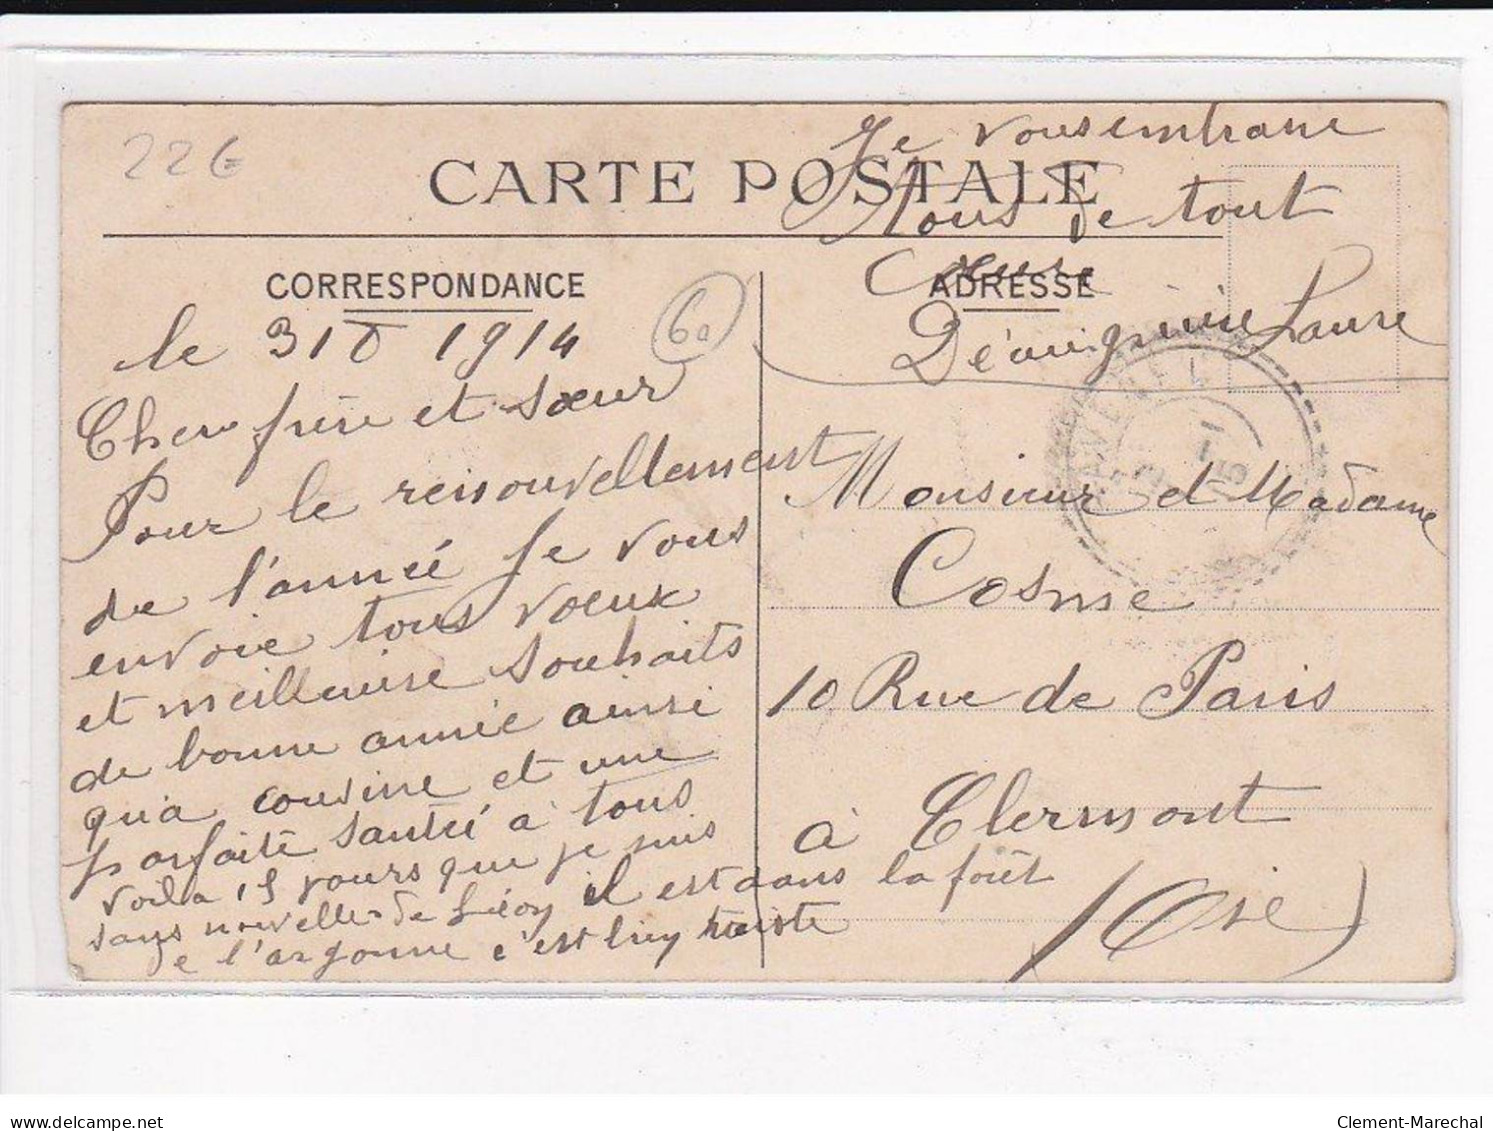 22€
CARTE POSTALE
Je vous embrasse
tous de tout
Cœur
CORRESPONDANCE
ADRESSE
60
Laure
le 31 D 1914
Cher frère et sœur
Pour le renouvellement
de l'année Je vous
envoie tous vœux
et meilleure souhaits
de bonne année ainsi
qu'a cousine et une
parfaite santé à tous
voila 15 jours que je suis
sans nouvelle de il est dans la forêt
de l'argonne c'est bien triste
Monsieur et Madame
Cosme
10 Rue de Paris
à Clermont
(Oise)
delcampe.net
Clement-Marechal